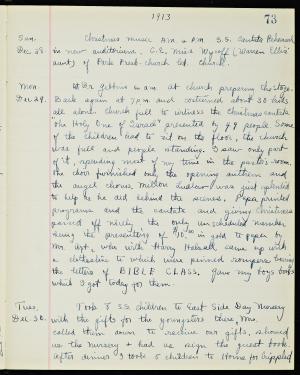 1913
73
Sun. Christmas music A.M. & P.M. S.S. Cantata Rehearsal
Dec 28. in new auditorium. C.E. Miss Wycoff (Warren Ellis'
aunt) of Park Presb. church led. Church.
Mon. At Mr. in a.m. at church preparing the stage.
Dec 29. Back again at 7 p.m. and costumed about 30 kids
all alone. Church full to witness the Christmas cantata
"The Holy One of Israel" presented by 49 people. Some
of the children had to sit on the floor, the church
was full and people standing. I saw only part
of it, spending most of my time in the pastor's room.
The choir furnished only the opening anthem and
the angel chorus. Milton Ludlow was just splendid
to help as he did behind the scenes. Papa printed
programs and the cantata and giving Christmas
passed off nicely, the only unscheduled number,
being the presenting of $10.00 in gold to papa by
Mr. who with Harry came up with
a clothesline to which were pinned rompers bearing
the letters of BIBLE CLASS. Gave my boys books
which I got today for them.
Tues. Took 8 S.S. children to East Side Day Nursery
Dec 30. with the gifts for the youngsters there, Mrs.
called them down to receive our gifts, showed
us the nursery & had us sign the guest book.
After dinner I took 5 children to Home for Crippled